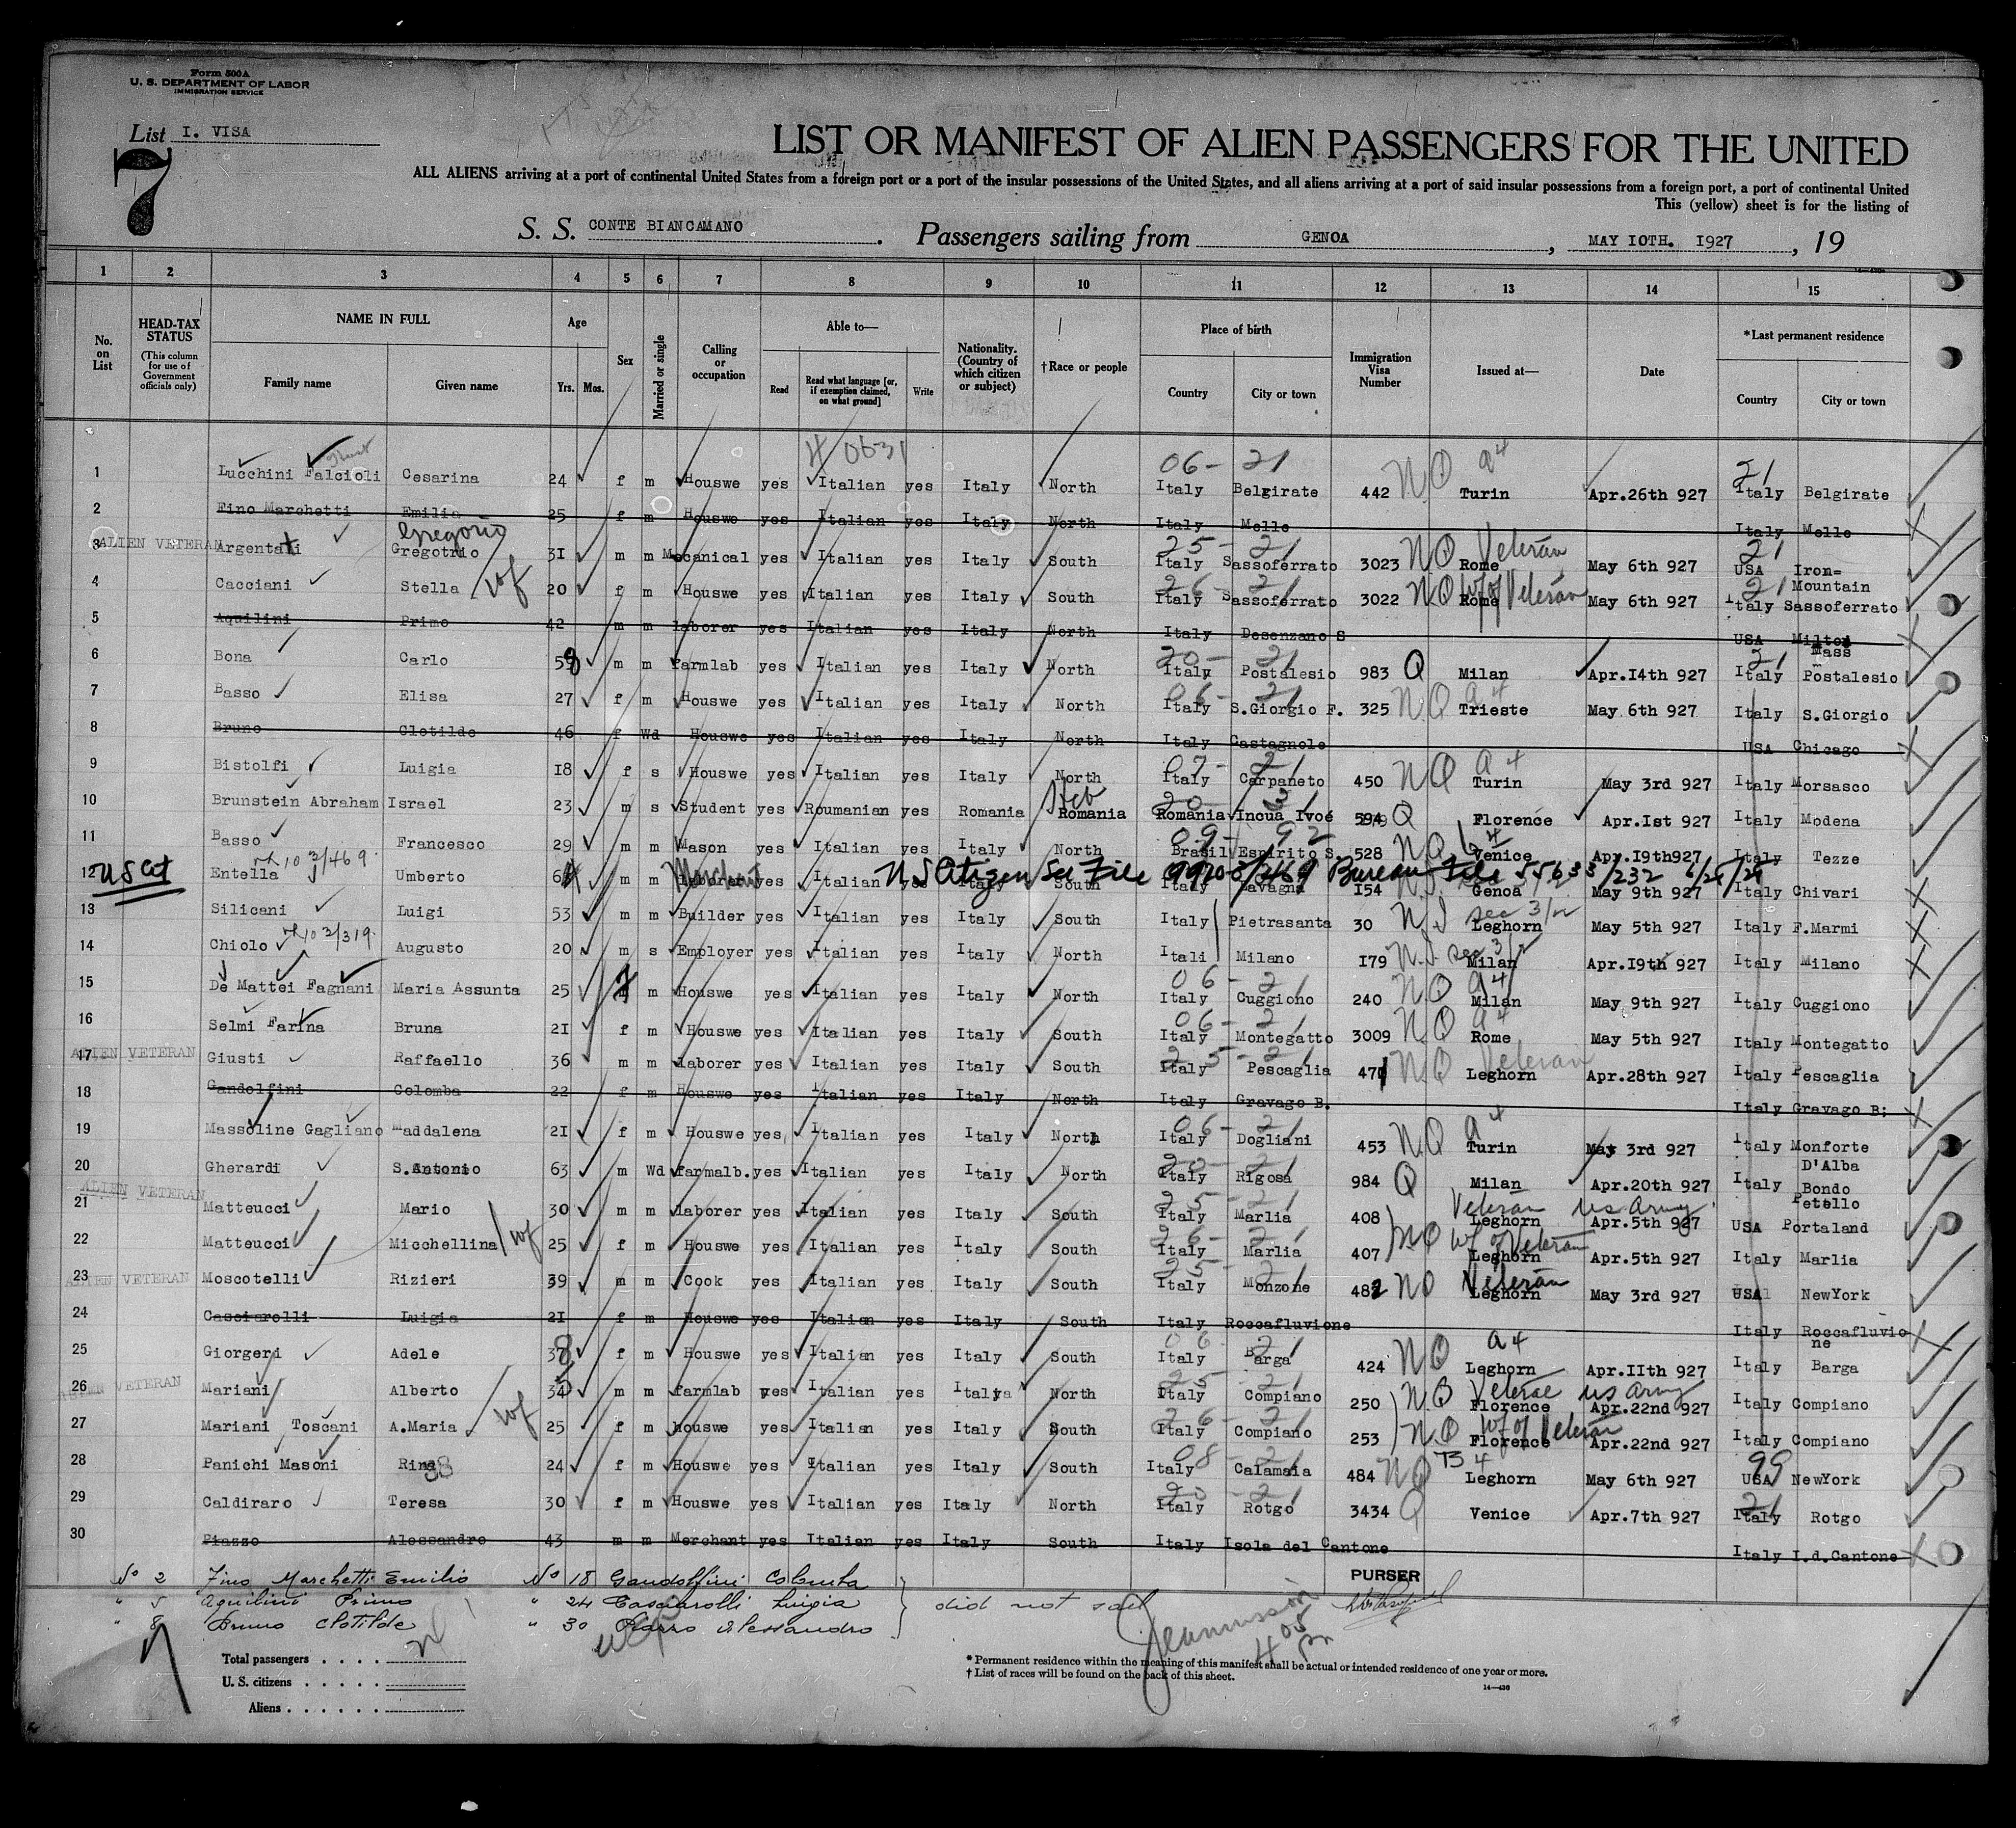 Form 500A
U. S. DEPARTMENT OF LABOR
IMMIGRATION SERVICE
List I. VISA
7
LIST OR MANIFEST OF ALIEN PASSENGERS FOR THE UNITED
ALL ALIENS arriving at a port of continental United States from a foreign port or a port of the insular possessions of the United States, and all aliens arriving at a port of said insular possessions from a foreign port, a port of continental United
This (yellow) sheet is for the listing of
S. S. CONTE BIANCAMANO. Passengers sailing from GENOA, MAY IOTH. I927, 19
1 2 3 4 5 6 7 8 9 10 11 12 13 14 15
No. on List HEAD-TAX STATUS (This column for use of Government officials only) NAME IN FULL Family name Given name Age Yrs. Mos. Sex Married or single Calling or occupation Able to— Read Read what language [or, if exemption claimed, on what ground] Write Nationality. (Country of which citizen or subject) †Race or people Place of birth Country City or town Immigration Visa Number Issued at— Date *Last permanent residence Country City or town
H 0631
06- 21 NQ a4 21
1 Lucchini Falcioli Cesarina 24 f m Houswe yes Italian yes Italy North Italy Belgirate 442 Turin Apr.26th 927 Italy Belgirate
2 Fino Marchetti Emilia 25 f m Houswe yes Italian yes Italy North Italy Mello Italy Mello
Gregorio 25- 21 NQ Veteran 21
ALIEN VETERAN
3 Argentati Gregotrio 3I m m Mecanical yes Italian yes Italy South Italy Sassoferrato 3023 Rome May 6th 927 USA Iron=
Mountain
4 Cacciani Stella wf 20 f m Houswe yes Italian yes Italy South Italy Sassoferrato 3022 NQ Rome wf of Veteran May 6th 927 Italy Sassoferrato
5 Aquilini Primo 42 m m laborer yes Italian yes Italy North Italy Desenzano S USA Milton
Mass
6 Bona Carlo 58 m m farmlab yes Italian yes Italy North Italy Postalesio 983 Q Milan Apr.I4th 927 Italy Postalesio
7 Basso Elisa 27 f m Houswe yes Italian yes Italy North Italy S.Giorgio F. 325 NQ a4 Trieste May 6th 927 Italy S.Giorgio
8 Bruno Clotilde 46 f Wd Houswe yes Italian yes Italy North Italy Castagnole USA Chicago
9 Bistolfi Luigia I8 f s Houswe yes Italian yes Italy North Italy Carpaneto 450 NQ a4 Turin May 3rd 927 Italy Morsasco
10 Brunstein Abraham Israel 23 m s Student yes Roumanian yes Romania Heb Romania Romania Inoua Ivoé 594 Q Florence Apr.Ist 927 Italy Modena
11 Basso Francesco 29 m m Mason yes Italian yes Italy North Brasil Espirito S. 528 NQ Venice Apr.I9th927 Italy Tezze
US Cit US Citizen See File 99100/269 Bureau File 55633/232 6/29/29
12 Entella Umberto m m laborer Merchant yes Italian yes Italy South Lavagna I54 Genoa May 9th 927 Italy Chivari
13 Silicani Luigi 53 m m Builder yes Italian yes Italy South Italy Pietrasanta 30 Leghorn May 5th 927 Italy F.Marmi
14 Chiolo Augusto 20 m s Employer yes Italian yes Italy North Itali Milano I79 Milan Apr.I9th 927 Italy Milano
15 De Mattei Fagnani Maria Assunta 25 f m Houswe yes Italian yes Italy North Italy Cuggiono 240 NQ a4 Milan May 9th 927 Italy Cuggiono
16 Selmi Farina Bruna 2I f m Houswe yes Italian yes Italy South Italy Montegatto 3009 NQ a4 Rome May 5th 927 Italy Montegatto
ALIEN VETERAN
17 Giusti Raffaello 36 m m laborer yes Italian yes Italy South Italy Pescaglia 471 NQ Veteran Leghorn Apr.28th 927 Italy Pescaglia
18 Gandolfini Colomba 22 f m Houswe yes Italian yes Italy North Italy Gravago B. Italy Gravago B:
19 Massoline Gagliano Maddalena 2I f m Houswe yes Italian yes Italy North Italy Dogliani 453 NQ a4 Turin May 3rd 927 Italy Monforte
D'Alba
20 Gherardi S.Antonio 63 m Wd farmalb. yes Italian yes Italy North Italy Rigosa 984 Q Milan Apr.20th 927 Italy Bondo
Petello
ALIEN VETERAN
21 Matteucci Mario 30 m m laborer yes Italian yes Italy South Italy Marlia 408 Veteran us Army Leghorn Apr.5th 927 USA Portaland
22 Matteucci Micchellina wf 25 f m Houswe yes Italian yes Italy South Italy Marlia 407 NQ wf of Veteran Leghorn Apr.5th 927 Italy Marlia
ALIEN VETERAN
23 Moscotelli Rizieri 39 m m Cook yes Italian yes Italy South Italy Monzone 482 NQ Veteran Leghorn May 3rd 927 USA NewYork
24 Casciarolli Luigia 2I f m Houswe yes Italian yes Italy South Italy Roccafluvione Italy Roccafluvio
ne
25 Giorgeri Adele 38 f m Houswe yes Italian yes Italy South Italy Barga 424 NQ a4 Leghorn Apr.IIth 927 Italy Barga
ALIEN VETERAN
26 Mariani Alberto 34 m m farmlab yes Italian yes Italy North Italy Compiano 250 NQ us Army Florence Apr.22nd 927 Italy Compiano
27 Mariani Toscani A.Maria wf 25 f m houswe yes Italian yes Italy South Italy Compiano 253 NQ wf of Veteran Florence Apr.22nd 927 Italy Compiano
28 Panichi Masoni Rina 24 f m Houswe yes Italian yes Italy South Italy Calamaia 484 NQ Leghorn May 6th 927 USA NewYork
29 Caldiraro Teresa 30 f m Houswe yes Italian yes Italy North Italy Rotgo 3434 Q Venice Apr.7th 927 Italy Rotgo
30 Piazzo Alessandro 43 m m Merchant yes Italian yes Italy South Italy Isola del Cantone Italy I.d.Cantone
No 2 Fino Marchetti Emilio No 18 Gandolfini Colomba PURSER
" 5 Aquilini Primo " 24 Casciarolli Luigia did not sail
" 8 Bruno Clotilde " 30 Piazzo Alessandro
Total passengers
U. S. citizens
Aliens
* Permanent residence within the meaning of this manifest shall be actual or intended residence of one year or more.
† List of races will be found on the back of this sheet.
14—430